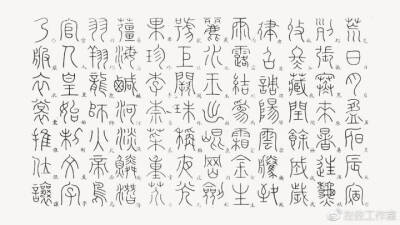 荒日月盈昃辰宿
列張寒來暑往秋
收冬藏閏餘成歲
律呂調陽雲騰致
雨露結為霜金生
麗水玉出崑岡劍
號巨闕珠稱夜光
果珍李柰菜重芥
薑海鹹河淡鱗潛
羽翔龍師火帝鳥
官人皇始制文字
乃服衣裳推位讓
@左佐工作室